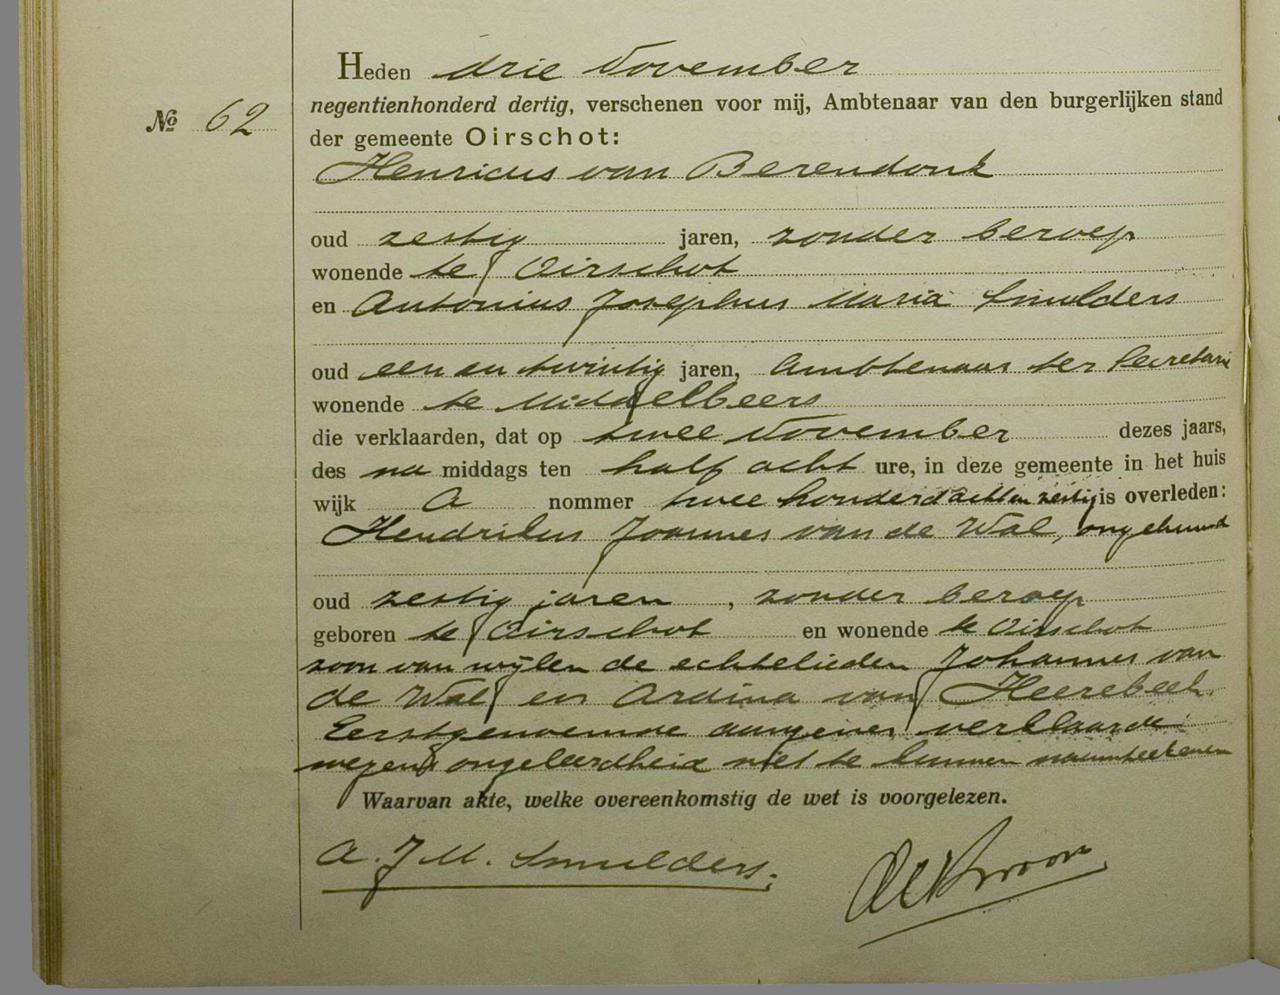 Heden drie November
No 62
negentienhonderd dertig, verschenen voor mij, Ambtenaar van den burgerlijken stand
der gemeente Oirschot:
Henricus van Berendonk
oud zestig jaren, zonder beroep
wonende te Oirschot
en Antonius Josephus Maria Smulders
oud een en twintig jaren, Ambtenaar ter Secretarie
wonende te Middelbeers
die verklaarden, dat op twee November dezes jaars,
des na middags ten half acht ure, in deze gemeente in het huis
wijk A nommer twee honderd acht en zestig is overleden:
Hendrikus Joannes van de Wal, ongehuwd
oud zestig jaren, zonder beroep
geboren te Oirschot en wonende te Oirschot
zoon van wijlen de echtelieden Johannes van
de Wal en Ardina van Heerebeek.
Eerstgenoemde aangever verklaarde
wegens ongeleerdheid niet te kunnen naamteekenen
Waarvan akte, welke overeenkomstig de wet is voorgelezen.
A. J. M. Smulders.